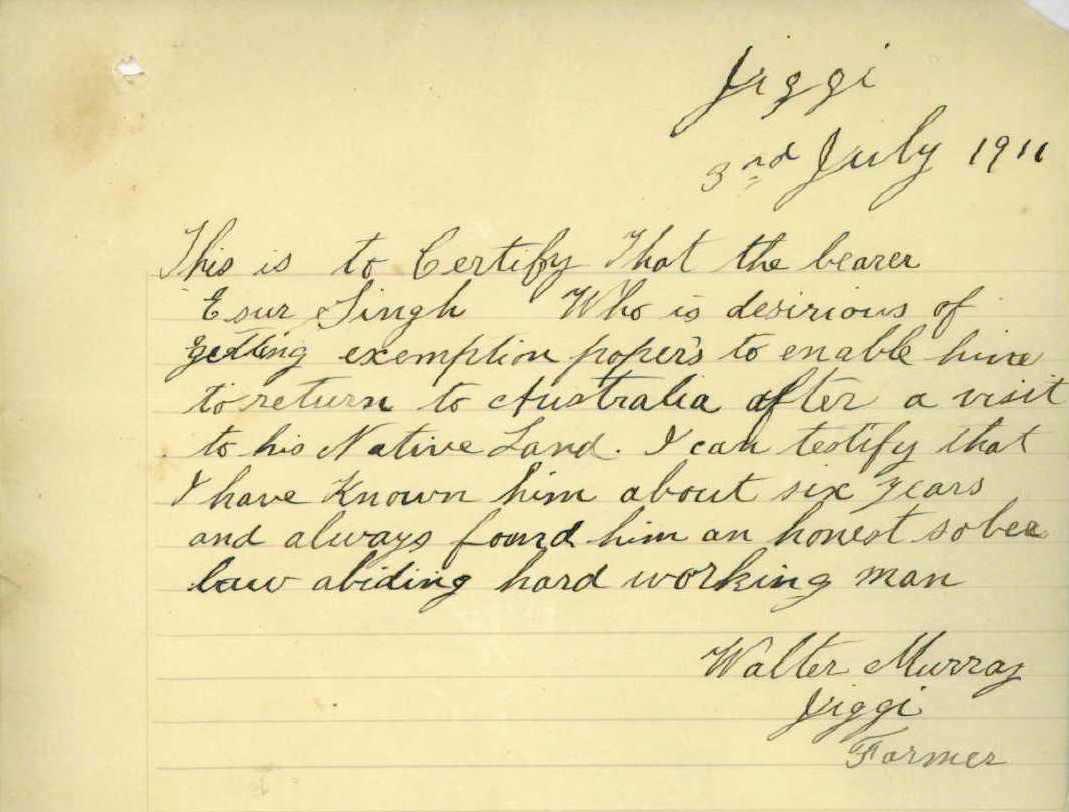 Jiggi
3rd July 1911
This is to Certify That the bearer
Esur Singh Who is desirious of
getting exemption poper's to enable him
to return to Australia after a visit
to his Native Land. I can testify that
I have Known him about six years
and always found him an honest sober
law abiding hard working man
Walter Murray
Jiggi
Farmer